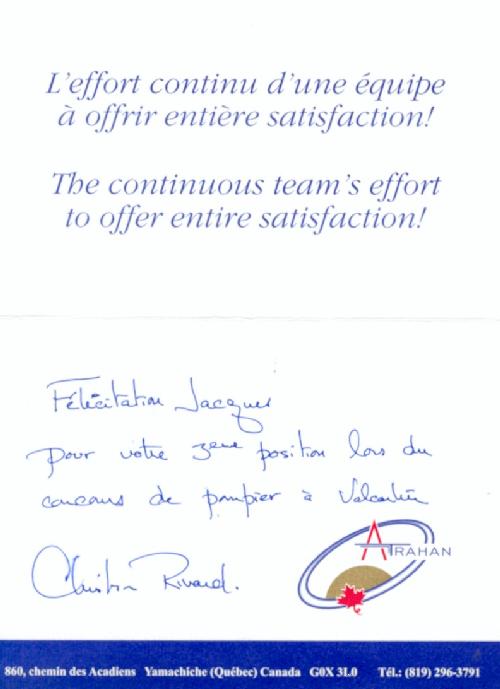 L'effort continu d'une équipe
à offrir entière satisfaction!
The continuous team's effort
to offer entire satisfaction!
Félicitation Jacques
pour votre 3eme position lors du
concours de pompier à Valcartier
Christian Rivard.
ATRAHAN
860, chemin des Acadiens Yamachiche (Québec) Canada G0X 3L0 Tél.: (819) 296-3791